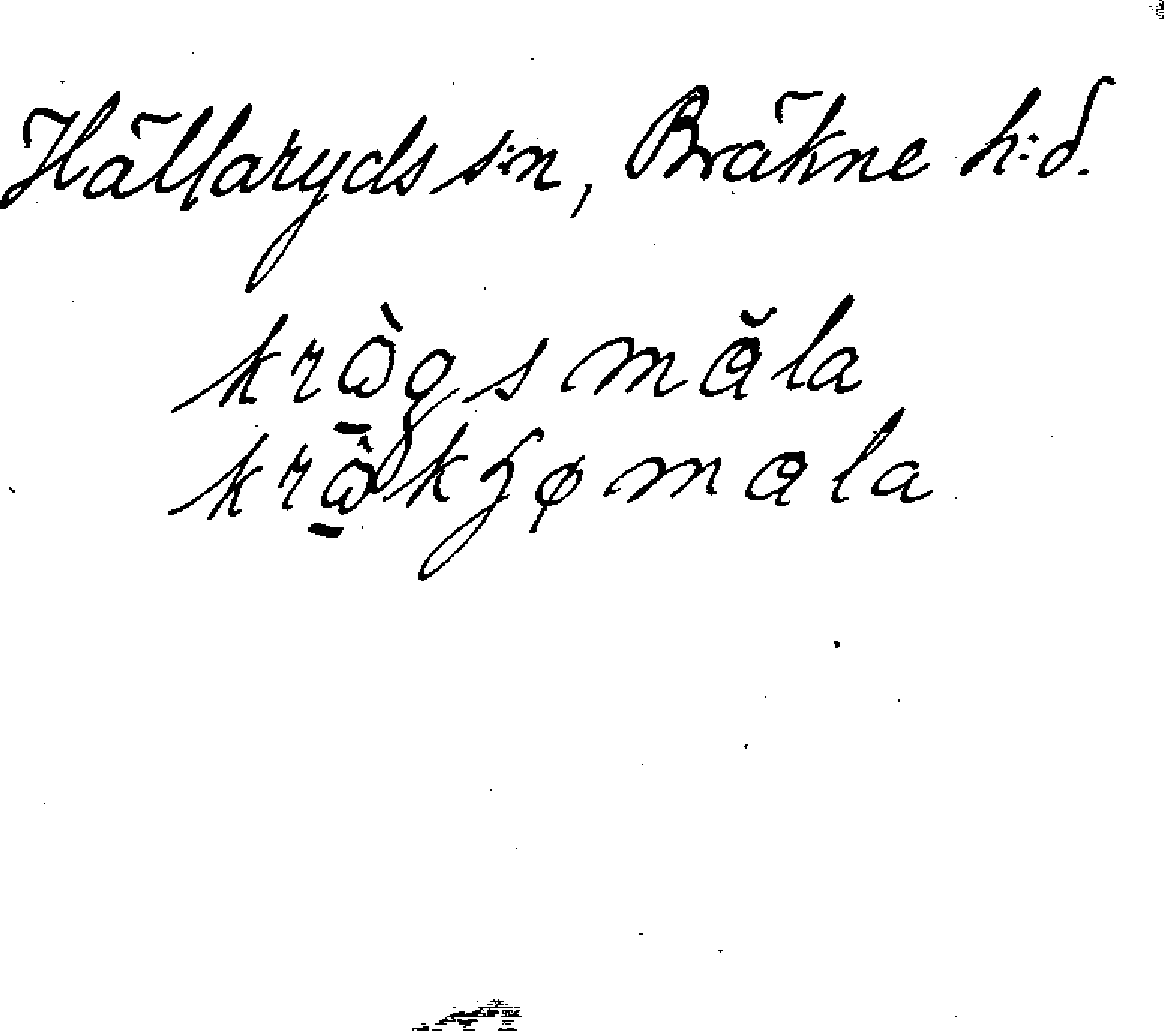 Hällaryds s:n, Bräkne h:d.
krà̱gsmăla
krà̱kɟømala